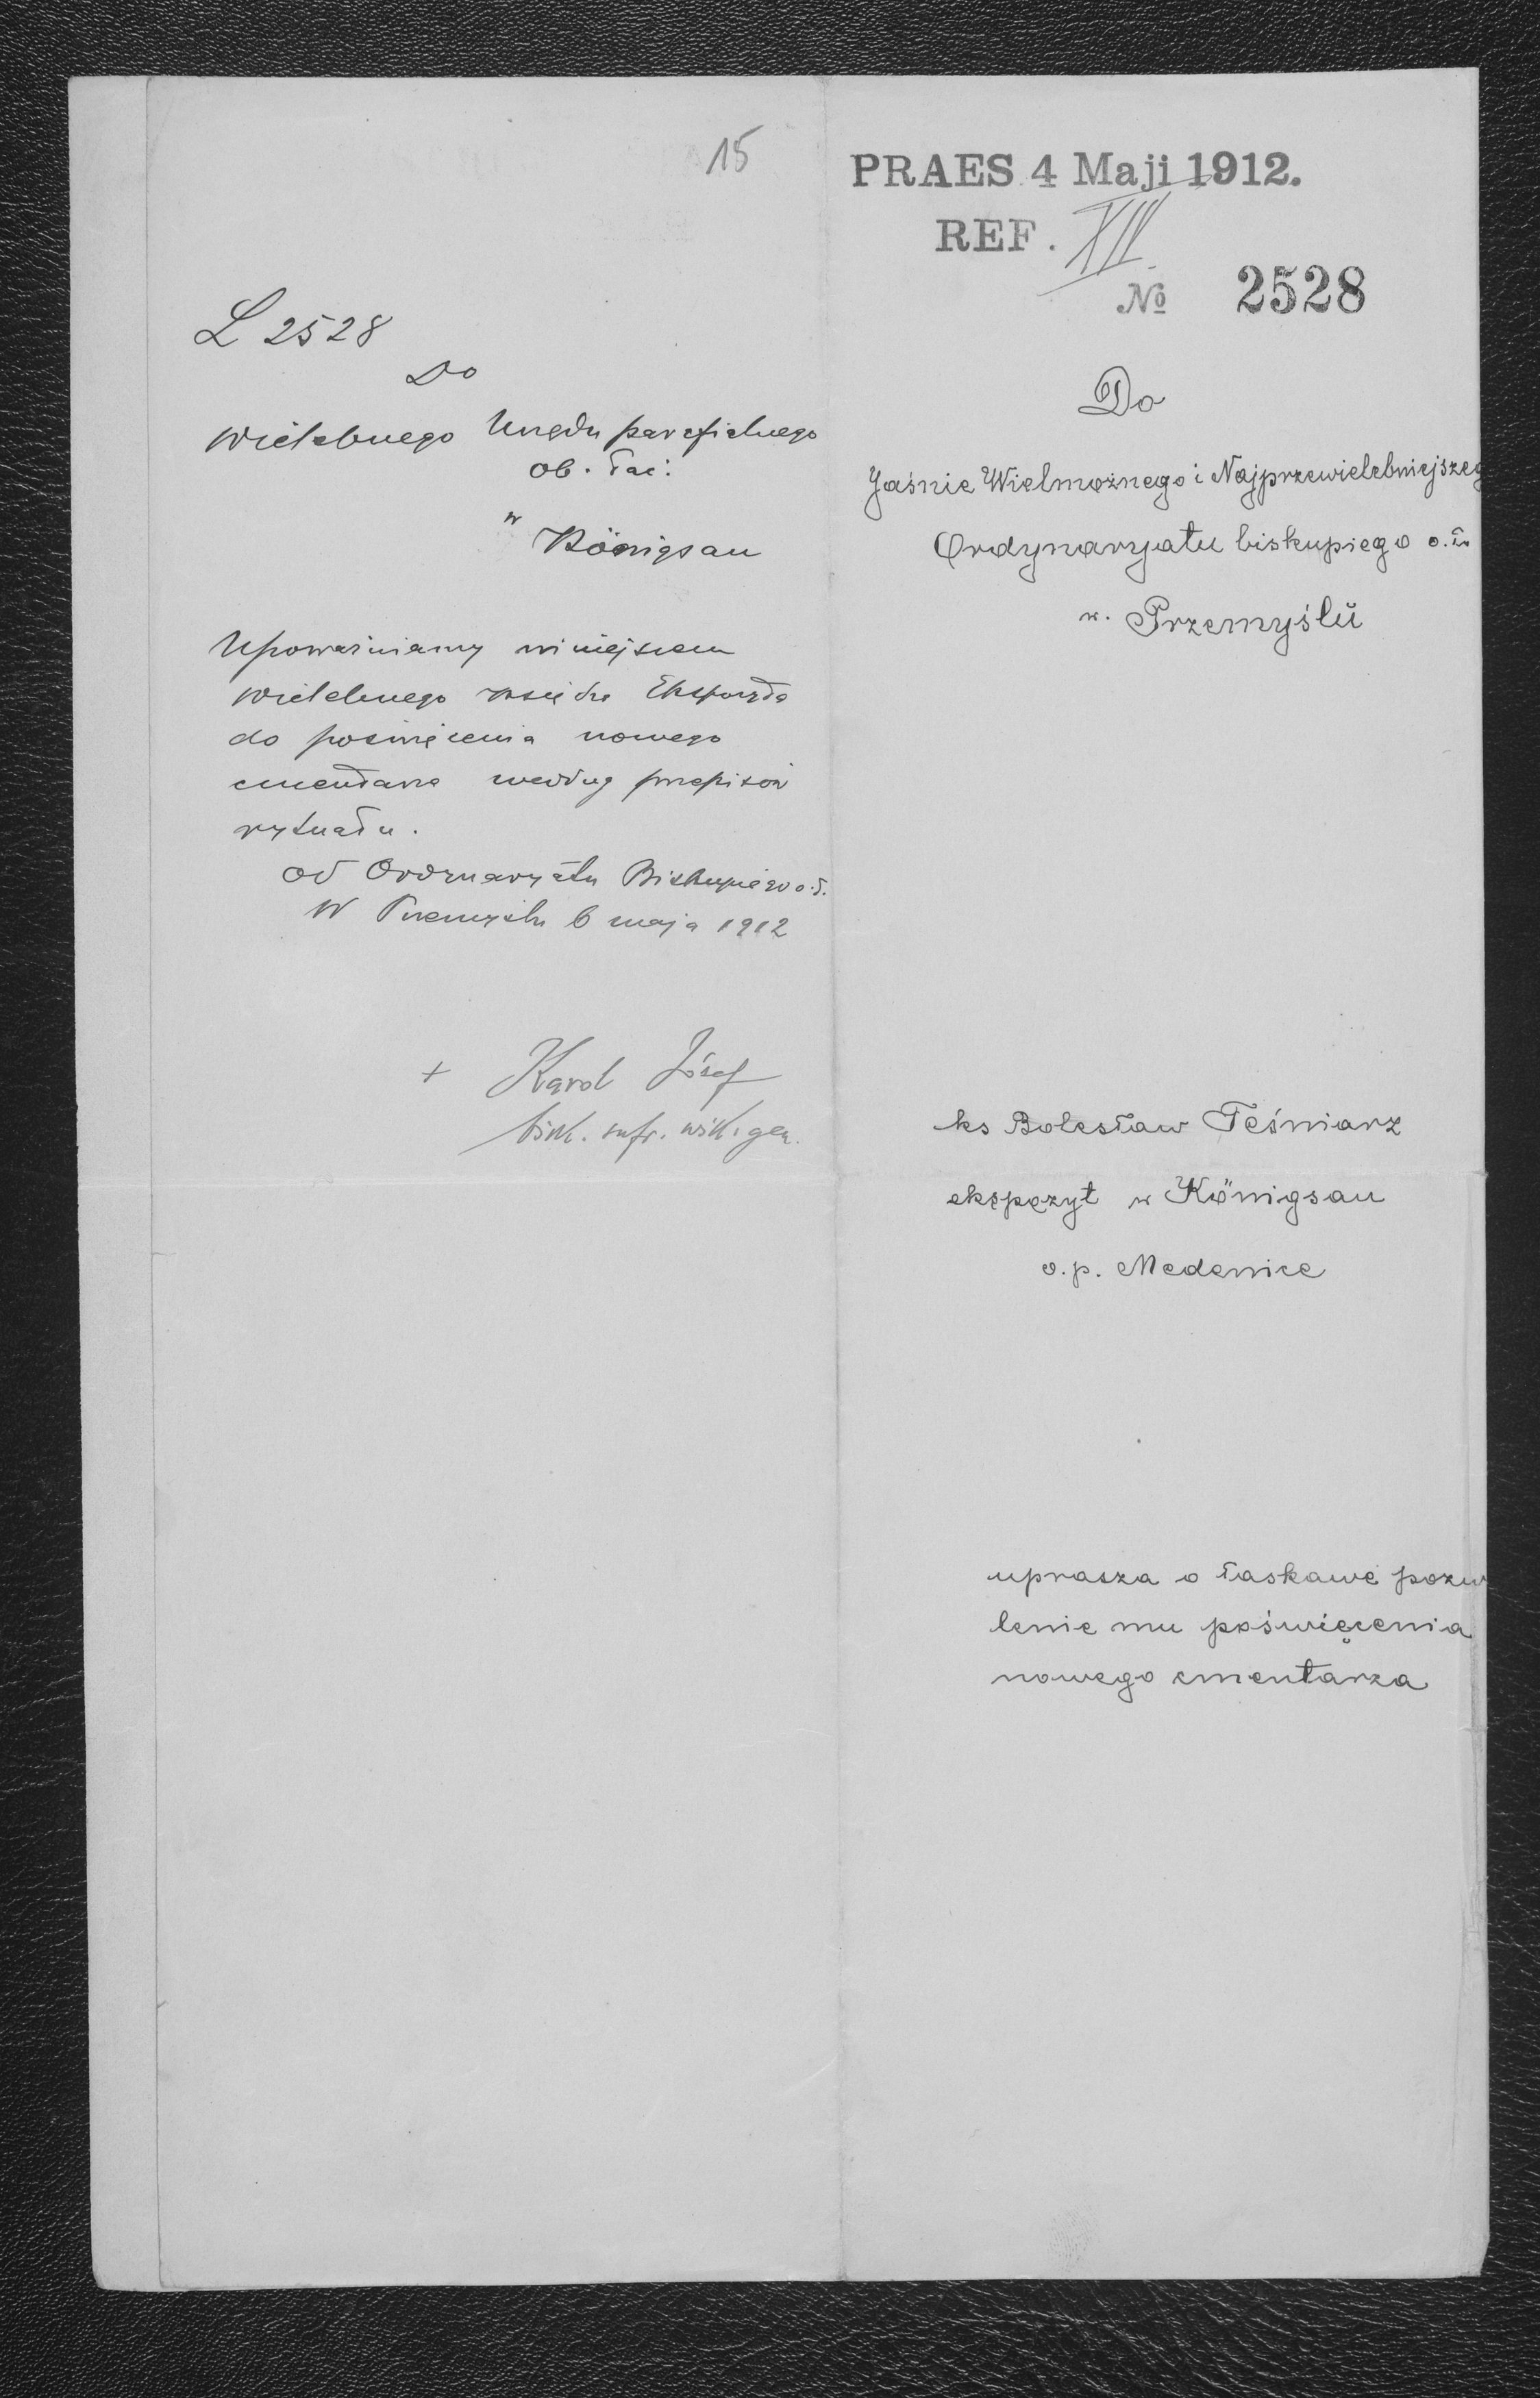 15
L 2528
Do
Wielebnego Urzędu parafialnego
ob. łać.
w Königsau
Upoważniamy niniejszem
Wielebnego księdza Ekspozyta
do poświęcenia nowego
cmentarza według przepisów
rytuału.
Od Ordynaryatu Biskupiego o. ł.
W Przemyślu 6 maja 1912
+ Karol Józef
bisk. sufr. wik. gen.
PRAES 4 Maji 1912.
REF. XII.
No 2528
Do
Jaśnie Wielmożnego i Najprzewielebniejszeg
Ordynaryatu biskupiego o. ł.
w. Przemyślu
ks Bolesław Teśniarz
ekspozyt w Königsau
o. p. Medenice
uprasza o łaskawe pozwo
lenie mu poświęcenia
nowego cmentarza